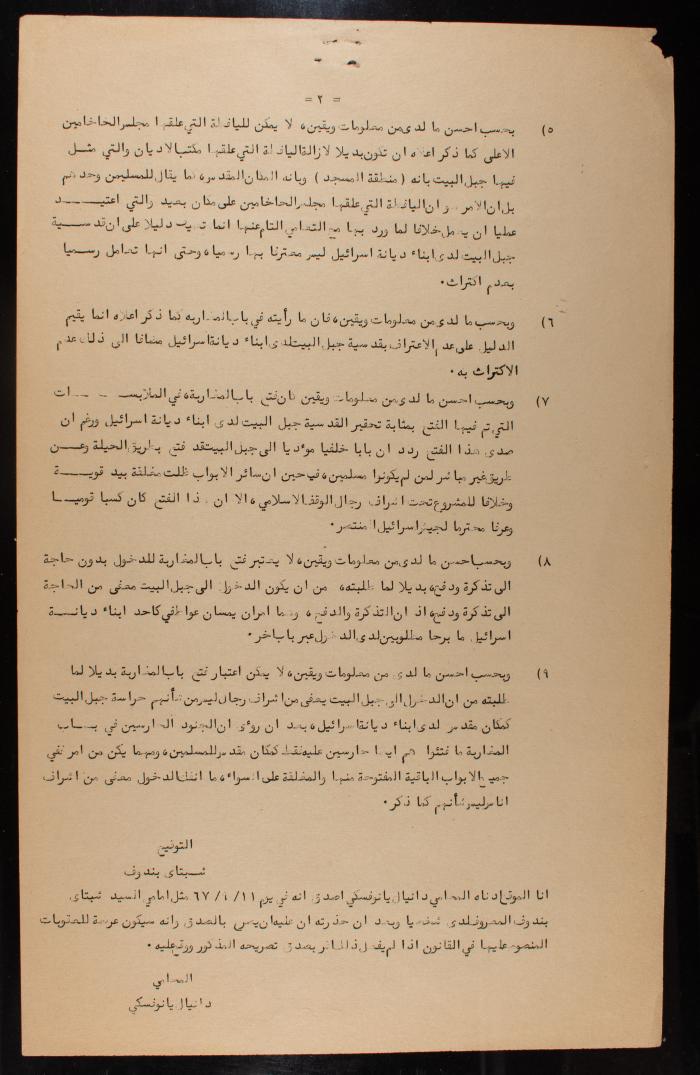 = ٢ =
٥) بحسب احسن ما لدى من معلومات ويقين، لا يمكن لليافطة التي علقها مجلس الحاخامين
الاعلى كما ذكر اعلاه ان تكون بديلا لازالة اليافطة التي علقها مكتب الاديان والتي مثل
فيها جبل البيت بانه ( منطقة المسجد ) وبانه المكان المقدس، كما يقال للمسلمين وحدهم
بل ان الامر هو ان اليافطة التي علقها مجلس الحاخامين على مكان بعيد والتي اعتيد
عمليا ان يعمل خلافا لما ورد بها مع التعامي التام عنها انما تعتبر دليلا على ان قدسية
جبل البيت لدى ابناء ديانة اسرائيل ليس معترفا بها رسميا، وحتى انها تعامل رسميا
بعدم اكتراث.
٦) وبحسب ما لدى من معلومات ويقين، فان ما رأيته في باب المغاربة كما ذكر اعلاه انما يقيم
الدليل على عدم الاعتراف بقدسية جبل البيت لدى ابناء ديانة اسرائيل مضافا الى ذلك عدم
الاكتراث به.
٧) وبحسب احسن ما لدى من معلومات ويقين كان فتح باب المغاربة، في الملابسات
التي تم فيها الفتح بمثابة تحقير القدسية جبل البيت لدى ابناء ديانة اسرائيل ورغم ان
صدى هذا الفتح ردد ان بابا خلفيا مؤديا الى جبل البيت قد فتح بطريق الحيلة وعن
طريق غير مباشر لمن لم يكونوا مسلمين، في حين ان سائر الابواب ظلت مغلقة بيد قوية
وخلافا للمشروع تحت اشراف رجال الوقف الاسلامي، الا ان هذا الفتح كان كسبا قوميا
وعرفا محترما لجيش اسرائيل المنتصر.
٨) وبحسب احسن ما لدى من معلومات ويقين، لا يعتبر فتح باب المغاربة للدخول بدون حاجة
الى تذكرة ودفع، بديلا لما طلبته، من ان يكون الدخول الى جبل البيت معفى من الحاجة
الى تذكرة ودفع، اذ ان التذكرة والدفع، وهما امران يمسان عواطفي كاحد ابناء ديانة
اسرائيل ما برحا مطلوبين لدى الدخول عبر باب اخر.
٩) وبحسب احسن ما لدى من معلومات ويقين، لا يمكن اعتبار فتح باب المغاربة بديلا لما
طلبته من ان الدخول الى جبل البيت يعفى من اشراف رجال ليس من شأنهم حراسة جبل البيت
كمكان مقدس لدى ابناء ديانة اسرائيل، بعد ان رؤى ان الجنود الحارسين في باب
المغاربة ما فتئوا هم ايضا حارسين عليه فقط كمكان مقدس للمسلمين، ومهما يكن من امر ففي
جميع الابواب الباقية المفتوحة منها والمغلقة على السواء، ما انفك الدخول معفى من اشراف
اناس ليس شأنهم كما ذكر.
التوقيع
شبتاي بندوف
انا الموقع ادناه المحامي دانيال يانوفسكي اصدق انه في يوم ١١/ ١/ ٦٧ مثل امامي السيد شبتاي
بندوف المعروف لدى شخصيا وبعد ان حذرته ان عليه ان يصرح بالصدق وانه سيكون عرضة للعقوبات
المنصوص عليها في القانون اذا لم يفعل ذلك اقر بصدق تصريحه المذكور ووقع عليه.
المحامي
دانيال يانوفسكي